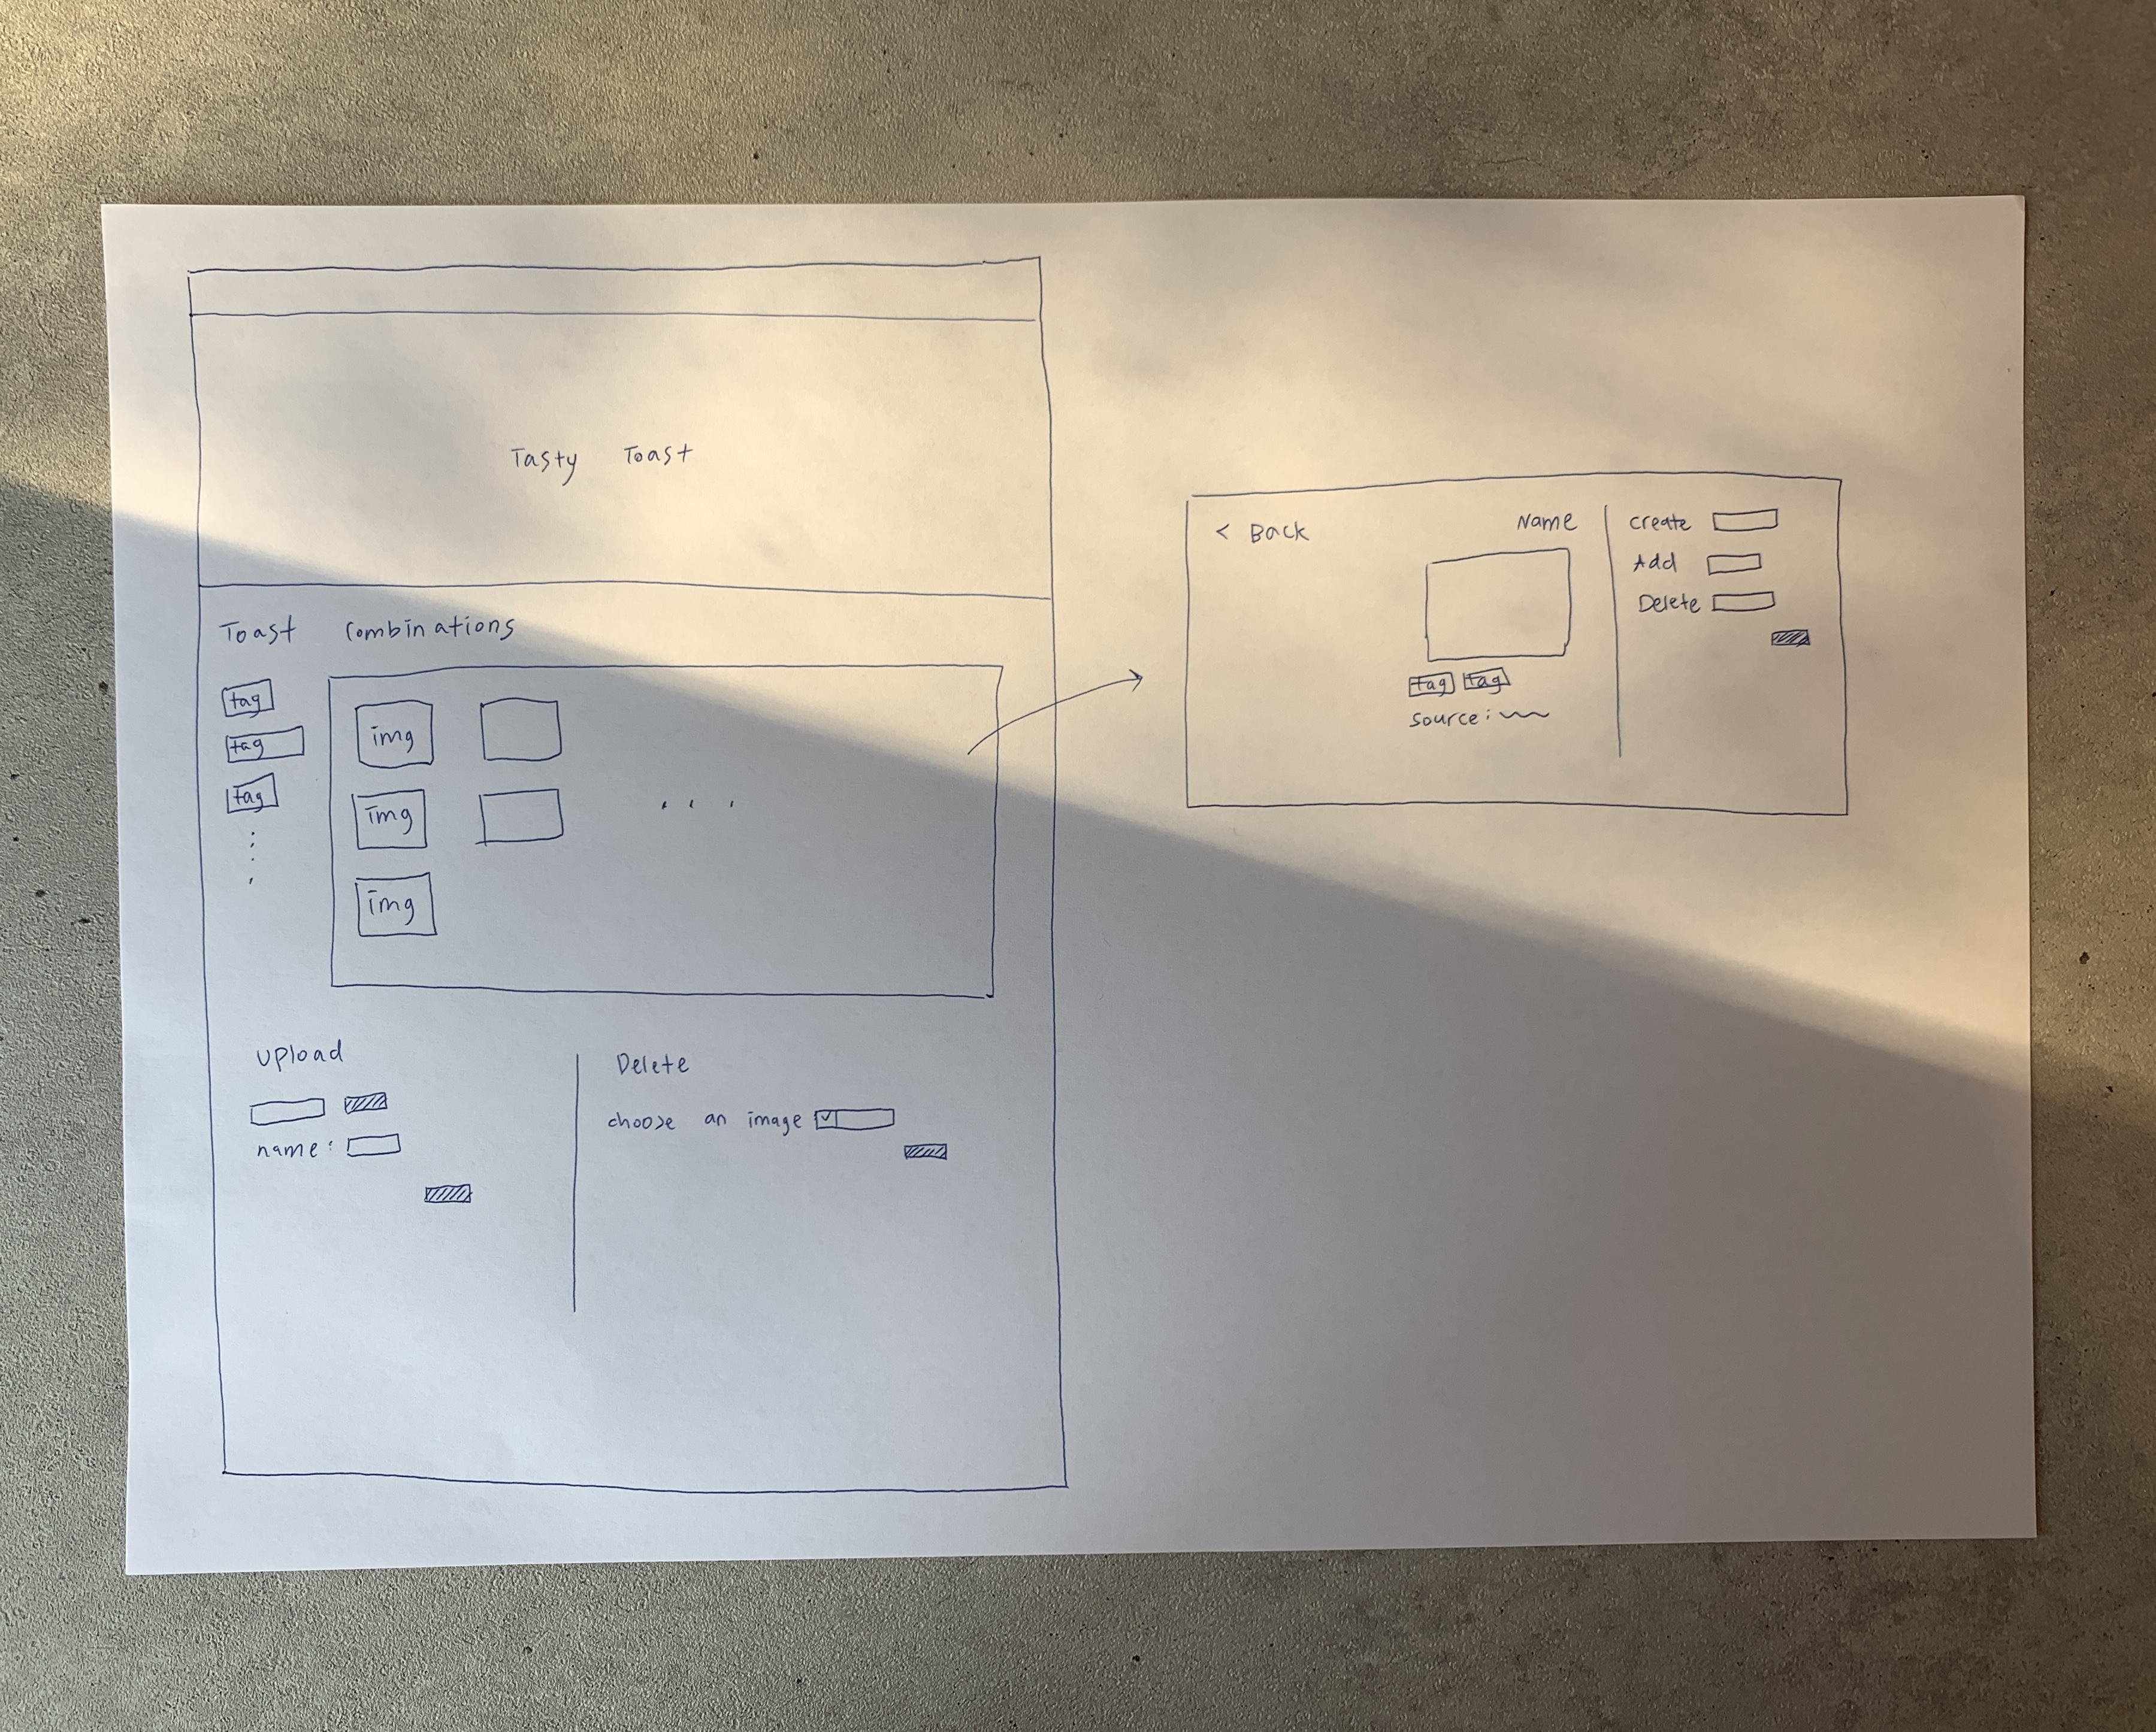 Tasty Toast
Toast Combinations
tag
tag
tag
img
img
img
upload
name:
Delete
choose an image
< Back
Name
tag tag
source:
create
Add
Delete